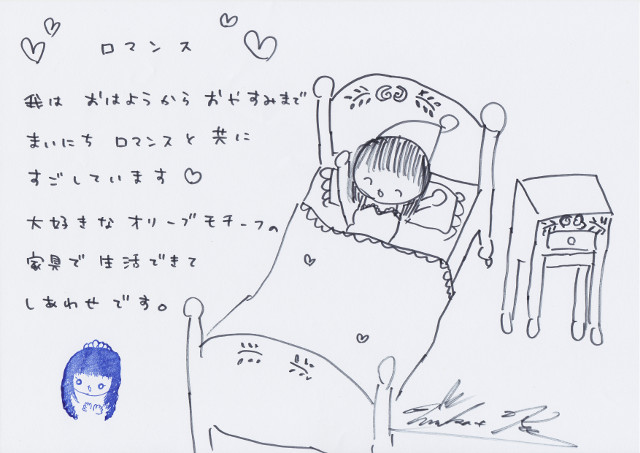 ロマンス
我は おはようから おやすみまで
まいにち ロマンスと 共に
すごしています♡
大好きな オリーブモチーフの
家具で 生活できて
しあわせです。